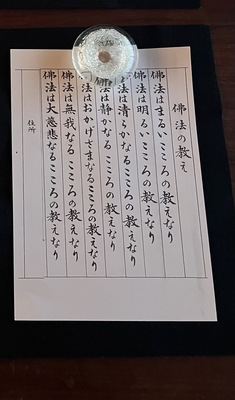 佛法の教え
佛法はまるいこころの教えなり
佛法は明るいこころの教えなり
法は清らかなるこころの教えなり
佛法は静かなるこころの教えなり
法はおかげさまなるこころの教えなり
佛法は無我なるこころの教えなり
佛法は大慈悲なるこころの教えなり
住所